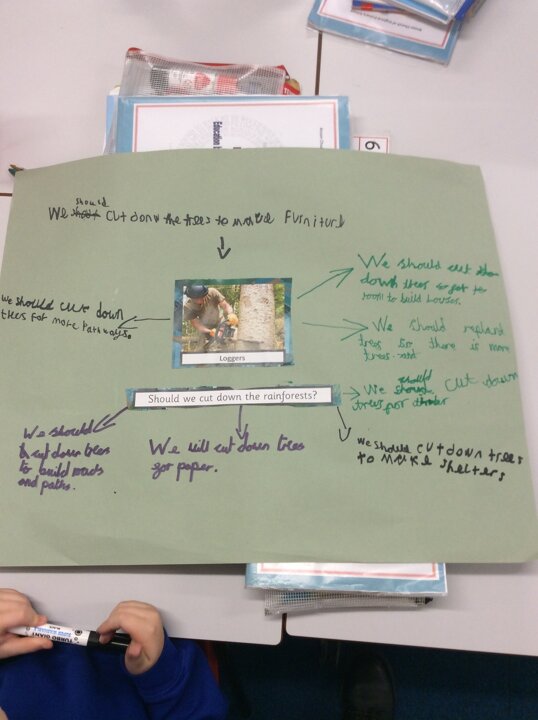 Education
6
should
We cut down the trees to make Furniture
We should cut
down trees so get to
room to build houses.
We should cut down
trees for more Pathways
We should replant
trees so there is more
trees
Loggers
should
We cut down
trees for
Should we cut down the rainforests?
We should
cut down trees
to build roads
and paths.
We will cut down trees
for paper.
we should cut down trees
to make shelters
TURBO GIANT